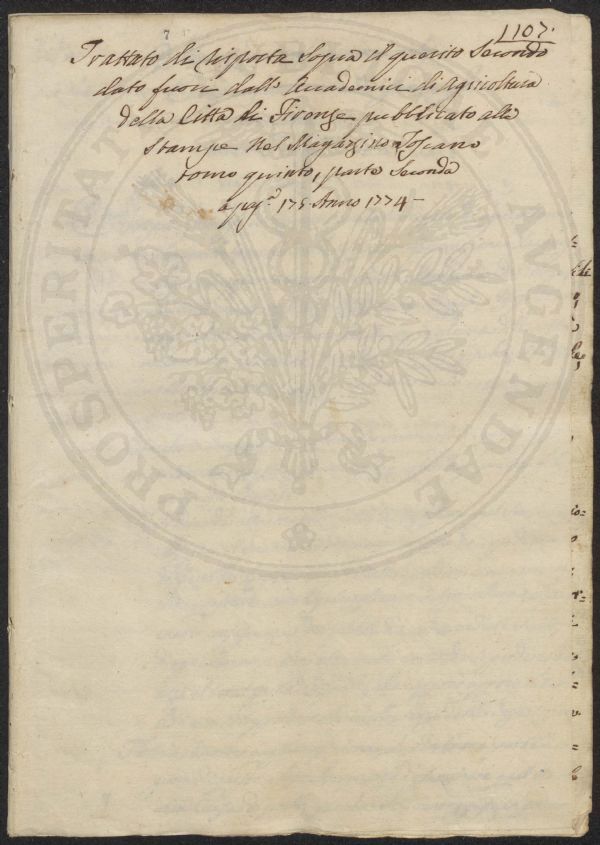 1107.
7
Trattato di risposta sopra il quesito secondo
dato fuori dall' Accademici di Agricoltura
della Città di Firenze pubblicato alle
stampe nel Magazzino Toscano
tomo quinto, parte seconda
a pag.ª 175. Anno 1774 -
PROSPERITATI AVGENDAE